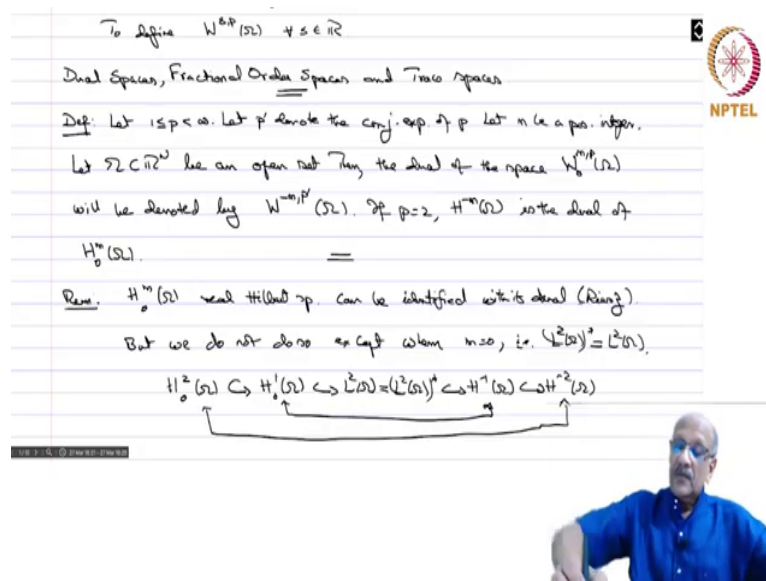 To define W^{s,p}(Ω) ∀ s ∈ ℝ
Dual Spaces, Fractional Order Spaces and Trace spaces.
Def: Let 1≤p<∞. Let p' denote the conj. exp. of p Let m be a pos. integer.
Let Ω ⊂ ℝ^N be an open set Then, the dual of the space W_0^{m,p}(Ω)
will be denoted by W^{-m,p'}(Ω). If p=2, H^{-m}(Ω) is the dual of
H_0^m(Ω).
Rem. H_0^m(Ω) real Hilbert sp. can be identified with its dual (Riesz).
But we do not do so except when m=0, i.e. (L^2(Ω))* = L^2(Ω).
H_0^2(Ω) ↪ H_0^1(Ω) ↪ L^2(Ω) = (L^2(Ω))* ↪ H^{-1}(Ω) ↪ H^{-2}(Ω)
NPTEL